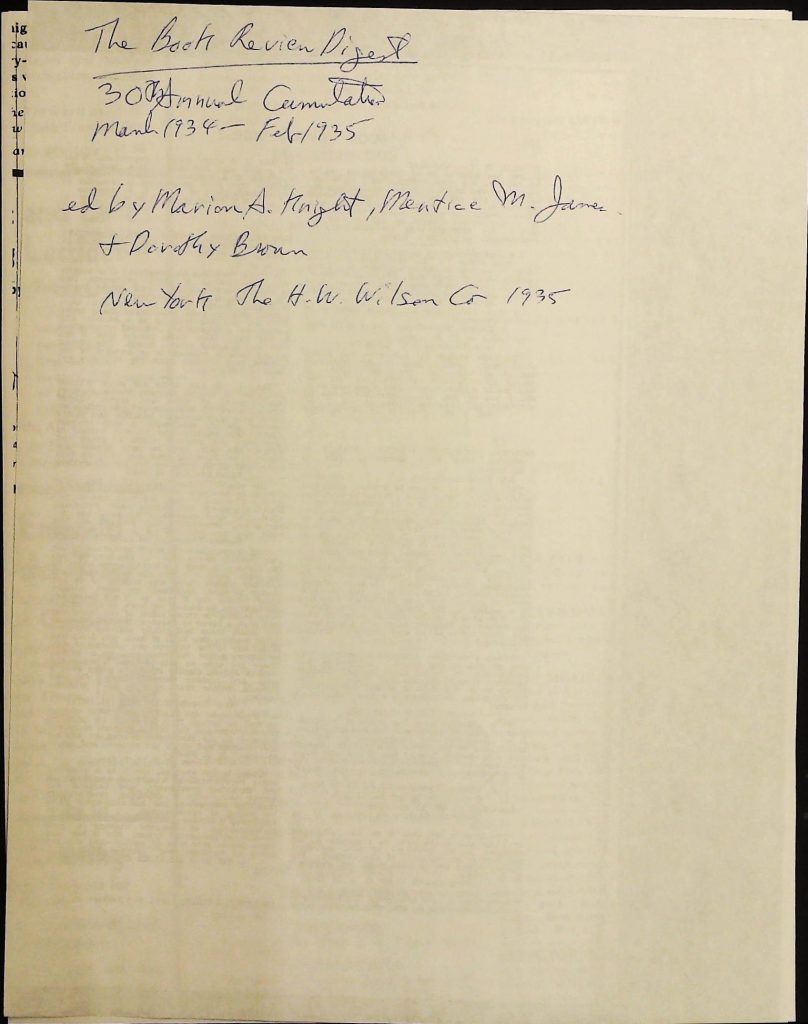 The Book Review Digest
30th Annual Cumulation
March 1934 - Feb 1935
ed by Marion A. Knight, Mertice M. James
+ Dorothy Brown
New York The H.W. Wilson Co 1935